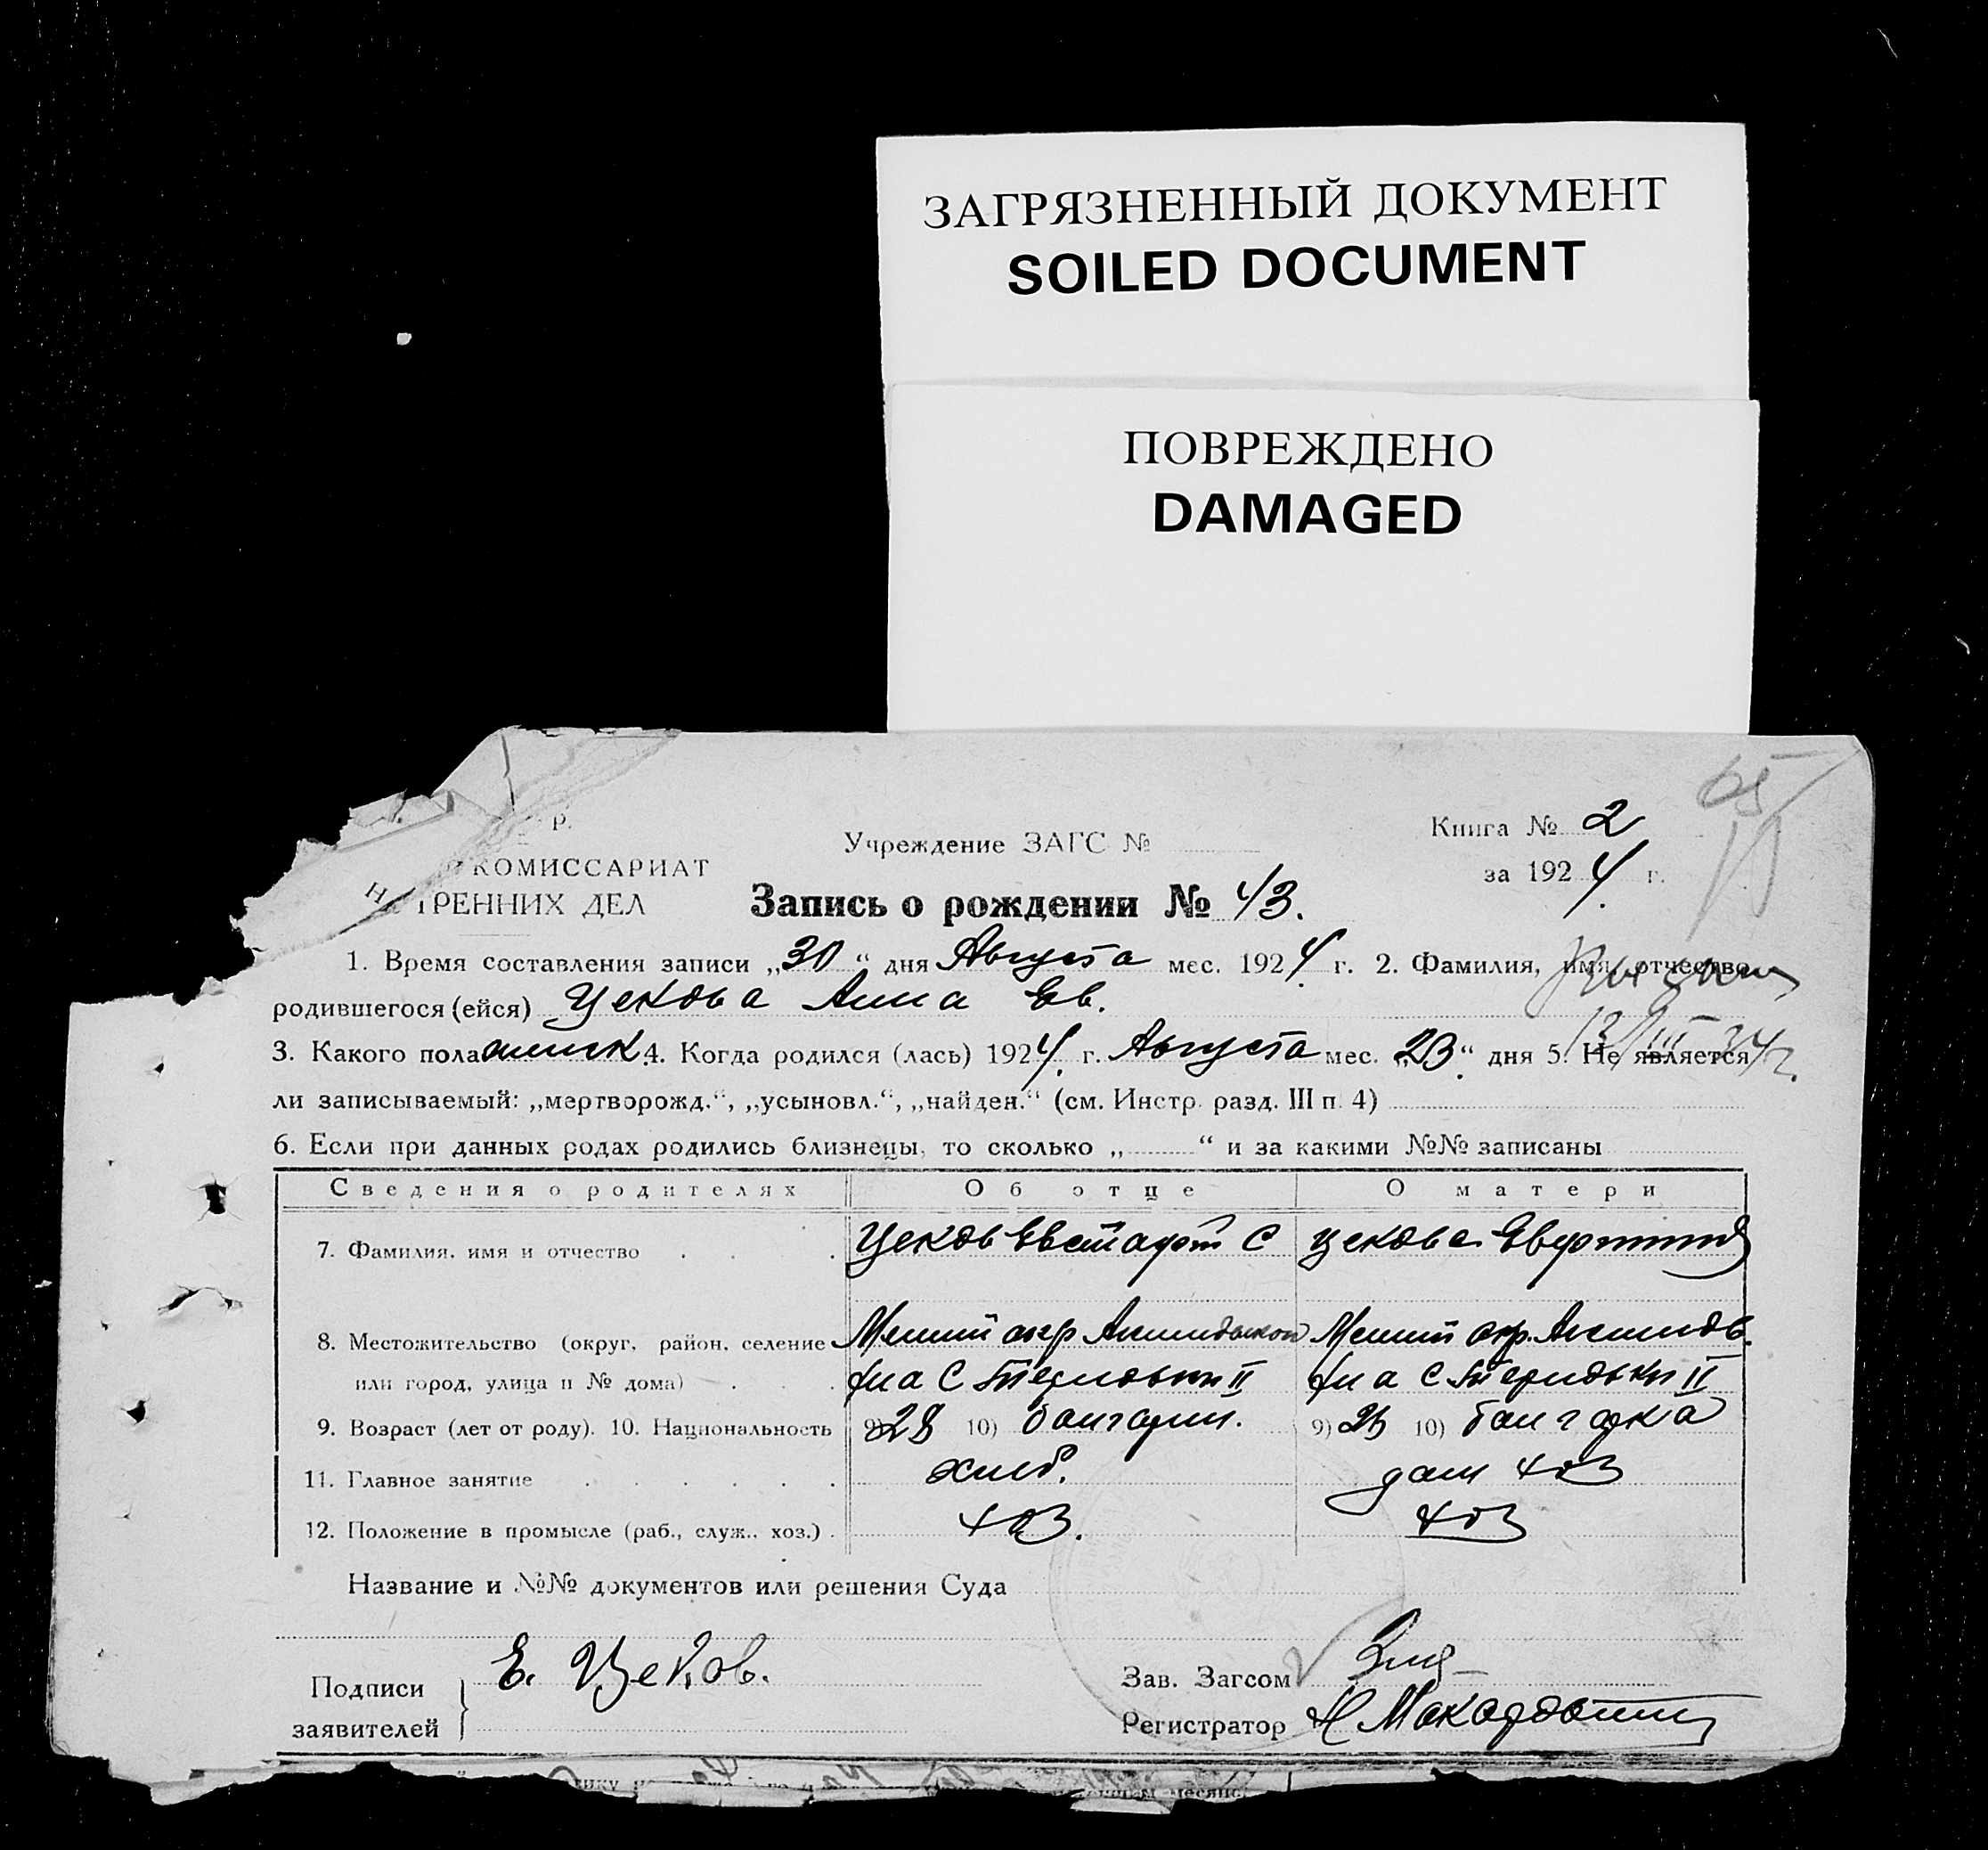 ЗАГРЯЗНЕННЫЙ ДОКУМЕНТ
SOILED DOCUMENT
ПОВРЕЖДЕНО
DAMAGED
65
Р.
КОМИССАРИАТ
ТРЕННИХ ДЕЛ
Учреждение ЗАГС №
Книга № 2
за 1924 г.
Запись о рождении № 43.
1. Время составления записи „30“ дня Августа мес. 1924 г. 2. Фамилия, имя, отчество
родившегося (ейся) Цекова Анна Ев.
3. Какого пола 4. Когда родился (лась) 1924 г. Августа мес. „23“ дня 5. Не является
ли записываемый: „мертворожд.“, „усыновл.“, „найден.“ (см. Инстр. разд. III п. 4)
6. Если при данных родах родились близнецы, то сколько „ “ и за какими №№ записаны
Сведения о родителях Об отце О матери
7. Фамилия, имя и отчество Цеков Евстафий С Цекова Евфимия
8. Местожительство (округ, район, селение
или город, улица и № дома) р-на С. Терновки II р-на С. Терновки II
9. Возраст (лет от роду). 10. Национальность 9) 28 10) болгарин. 9) 25 10) болгарка
11. Главное занятие хлеб. дом хоз
12. Положение в промысле (раб., служ., хоз.) хоз. хоз
Название и №№ документов или решения Суда
Подписи
заявителей
Е. Цеков.
Зав. Загсом
Регистратор